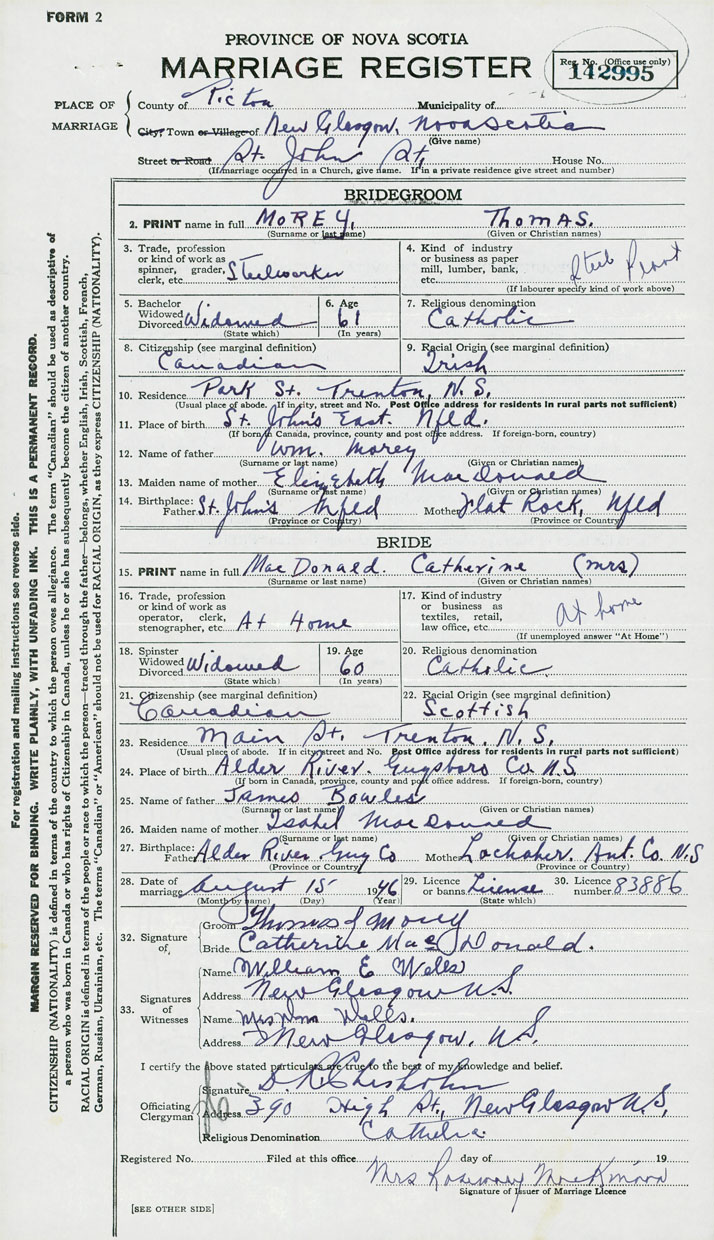 FORM 2
PROVINCE OF NOVA SCOTIA
MARRIAGE REGISTER
Reg. No. (Office use only)
142995
PLACE OF MARRIAGE
County of Pictou Municipality of
City, Town or Village of New Glasgow, Nova Scotia
(Give name)
Street or Road St. John St, House No.
(If marriage occurred in a Church, give name. If in a private residence give street and number)
BRIDEGROOM
2. PRINT name in full MOREY, THOMAS.
(Surname or last name) (Given or Christian names)
3. Trade, profession or kind of work as spinner, grader, clerk, etc. Steelworker
4. Kind of industry or business as paper mill, lumber, bank, etc. Steel Plant
(If labourer specify kind of work above)
5. Bachelor Widowed Divorced Widowed
(State which)
6. Age 61
(In years)
7. Religious denomination
Catholic
8. Citizenship (see marginal definition)
Canadian
9. Racial Origin (see marginal definition)
Irish
10. Residence Park St. Trenton, N.S.
(Usual place of abode. If in city, street and No. Post Office address for residents in rural parts not sufficient)
11. Place of birth St. John's East. Nfld.
(If born in Canada, province, county and post office address. If foreign-born, country)
12. Name of father Wm. Morey
(Surname or last name) (Given or Christian names)
13. Maiden name of mother Elizabeth MacDonald
(Surname or last name) (Given or Christian names)
14. Birthplace: Father St. John's Nfld Mother Flat Rock, Nfld
(Province or Country) (Province or Country)
BRIDE
15. PRINT name in full MacDonald. Catherine (Mrs)
(Surname or last name) (Given or Christian names)
16. Trade, profession or kind of work as operator, clerk, stenographer, etc. At Home
17. Kind of industry or business as textiles, retail, law office, etc. At home
(If unemployed answer "At Home")
18. Spinster Widowed Divorced Widowed
(State which)
19. Age 60
(In years)
20. Religious denomination
Catholic.
21. Citizenship (see marginal definition)
Canadian
22. Racial Origin (see marginal definition)
Scottish
23. Residence Main St. Trenton, N.S.
(Usual place of abode. If in city street and No. Post Office address for residents in rural parts not sufficient)
24. Place of birth Alder River. Guysboro Co. N.S
(If born in Canada, province, county and post office address. If foreign-born, country)
25. Name of father James Bowles
(Surname or last name) (Given or Christian names)
26. Maiden name of mother Isabel MacDonald
(Surname or last name) (Given or Christian names)
27. Birthplace: Father Alder River. Guy Co Mother Lochaber. Ant. Co. N.S
(Province or Country) (Province or Country)
28. Date of marriage August 15 1946
(Month by name) (Day) (Year)
29. Licence or banns License
(State which)
30. Licence number 83886
32. Signature of
Groom Thomas J Morey
Bride Catherine MacDonald.
33. Signatures of Witnesses
Name William E Wells
Address New Glasgow N.S.
Name Mrs Wells.
Address New Glasgow, N.S.
I certify the above stated particulars are true to the best of my knowledge and belief.
Officiating Clergyman
Signature D. R. Chisholm
Address 390 High St., New Glasgow N.S,
Religious Denomination Catholic
Registered No. Filed at this office day of 19
Mrs Rosemary MacKinnon
Signature of Issuer of Marriage Licence
[SEE OTHER SIDE]
For registration and mailing instructions see reverse side.
MARGIN RESERVED FOR BINDING. WRITE PLAINLY, WITH UNFADING INK. THIS IS A PERMANENT RECORD.
CITIZENSHIP (NATIONALITY) is defined in terms of the country to which the person owes allegiance. The term "Canadian" should be used as descriptive of
a person who was born in Canada or who has rights of Citizenship in Canada, unless he or she has subsequently become the citizen of another country.
RACIAL ORIGIN is defined in terms of the people or race to which the person—traced through the father—belongs, whether English, Irish, Scottish, French,
German, Russian, Ukrainian, etc. The terms "Canadian" or "American" should not be used for RACIAL ORIGIN, as they express CITIZENSHIP (NATIONALITY).